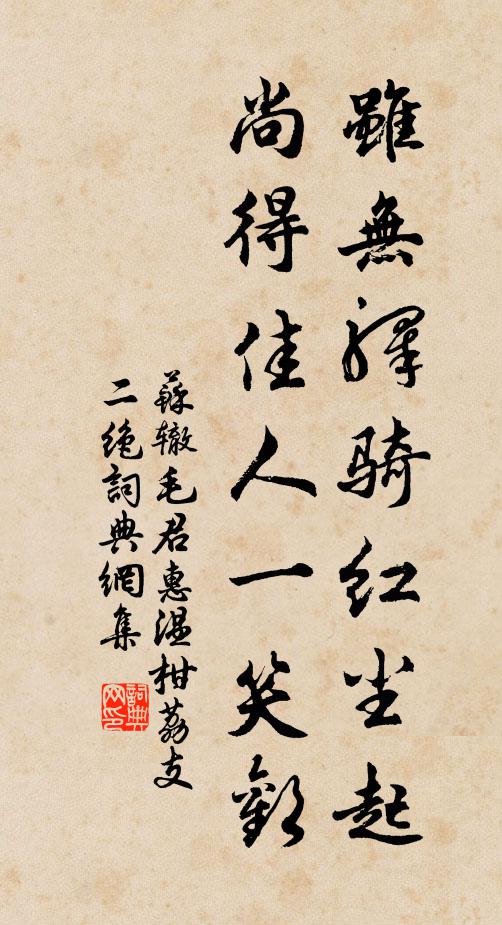 雖無驛騎紅塵起
尚得佳人一笑歡
蘇辙毛君惠温柑荔支
二絶詞典網集
詞典网印